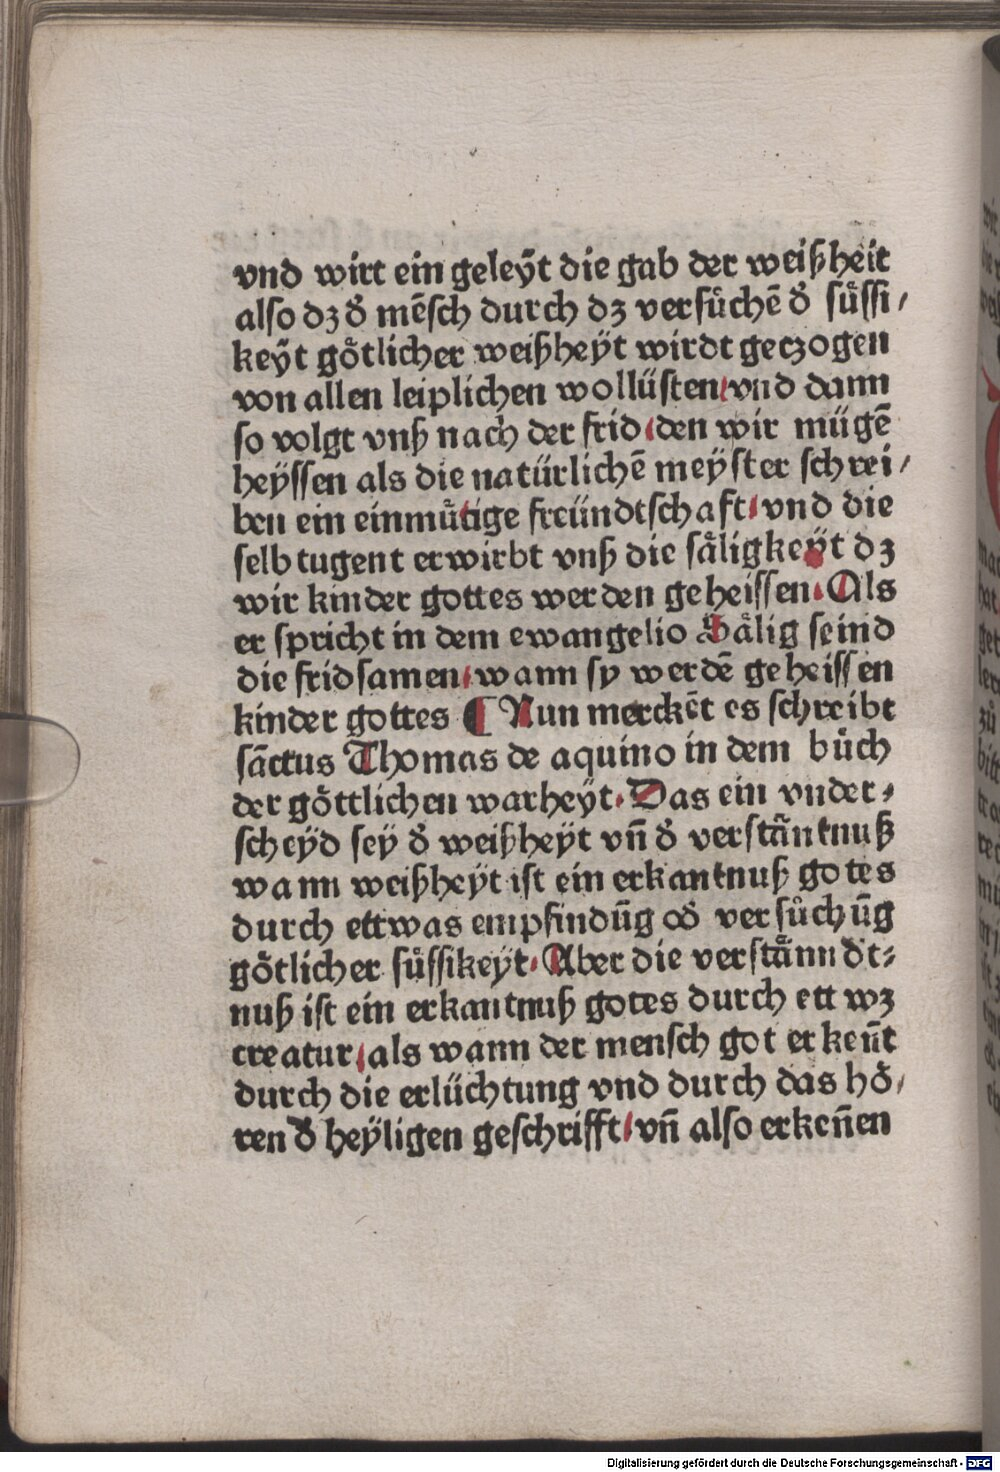 vnd wirt ein geleÿt die gab der weißheit
also dz dˢ mēsch durch dz versůchē dˢ süͤssi/
keÿt göͤtlicher weißheÿt wirdt getzogen
von allen leiplichen wollüsten/vnd dann
so volgt vnß nach der frid/den wir mügē
heÿssen als die natürlichē meÿster schrei/
ben ein einmüͤtige freündtschaft/vnd die
selb tugent erwirbt vnß die säͤligkeÿt dz
wir kinder gottes werden geheissen. Als
er spricht in dem ewangelio Säͤlig seind
die fridsamen/wann sy werdē geheissen
kinder gottes ¶ Nun merckēt es schreibt
sāctus Thomas de aquino in dem bůch
der göͤttlichen warheÿt. Das ein vnder⸗
scheÿd seÿ dˢ weißheÿt vn̄ dˢ verstäͤntnuß
wann weißheÿt ist ein erkantnuß gotes
durch ettwas empfindūg odˢ versůchūg
göͤtlicher süͤssikeÿt. Aber die verstäͤnndt⸗
nuß ist ein erkantnuß gotes durch ettwz
creatur/als wann der mensch got erken̄t
durch die erlüchtung vnd durch das höͤ/
ren dˢ heÿligen geschrifft/vn̄ also erken̄en
Digitalisierung gefördert durch die Deutsche Forschungsgemeinschaft - DFG